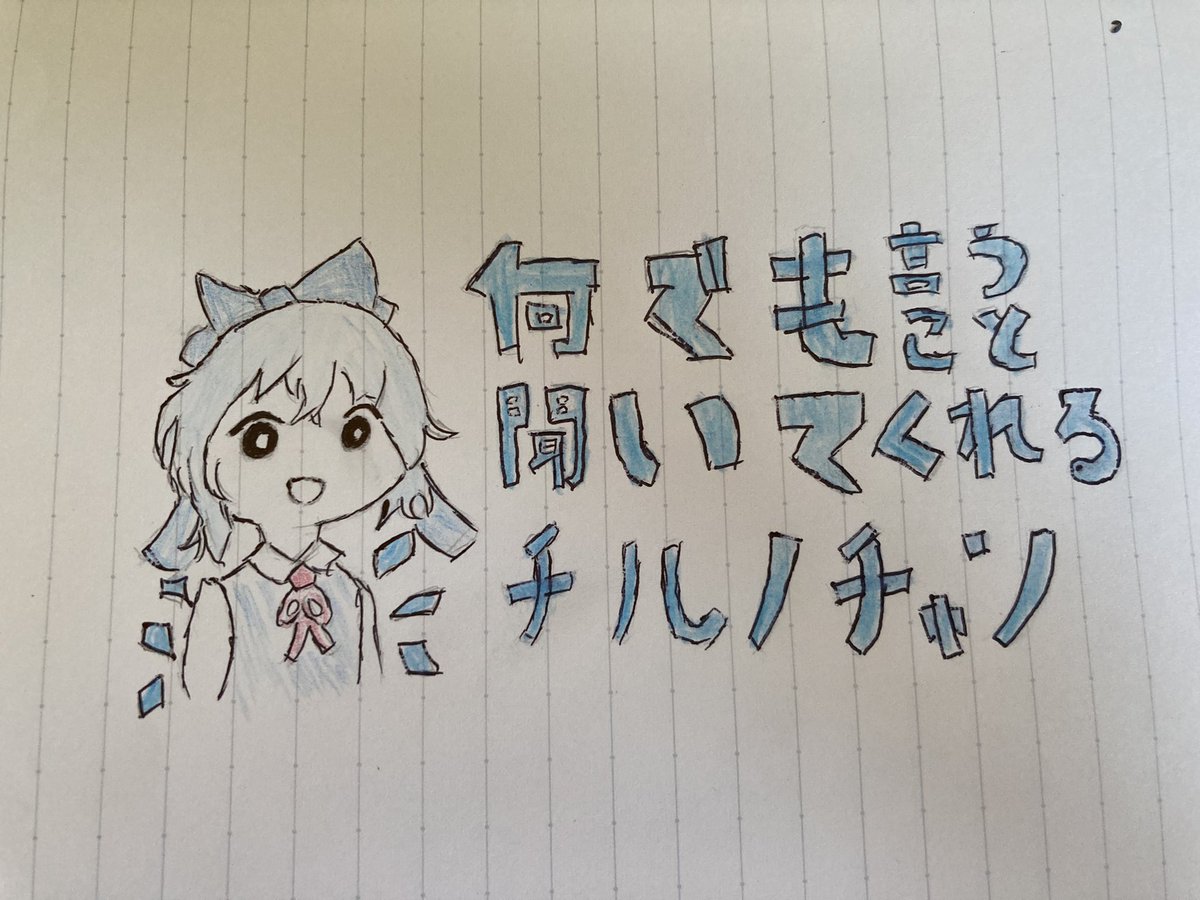 何でも言うこと
聞いてくれる
チルノチャン